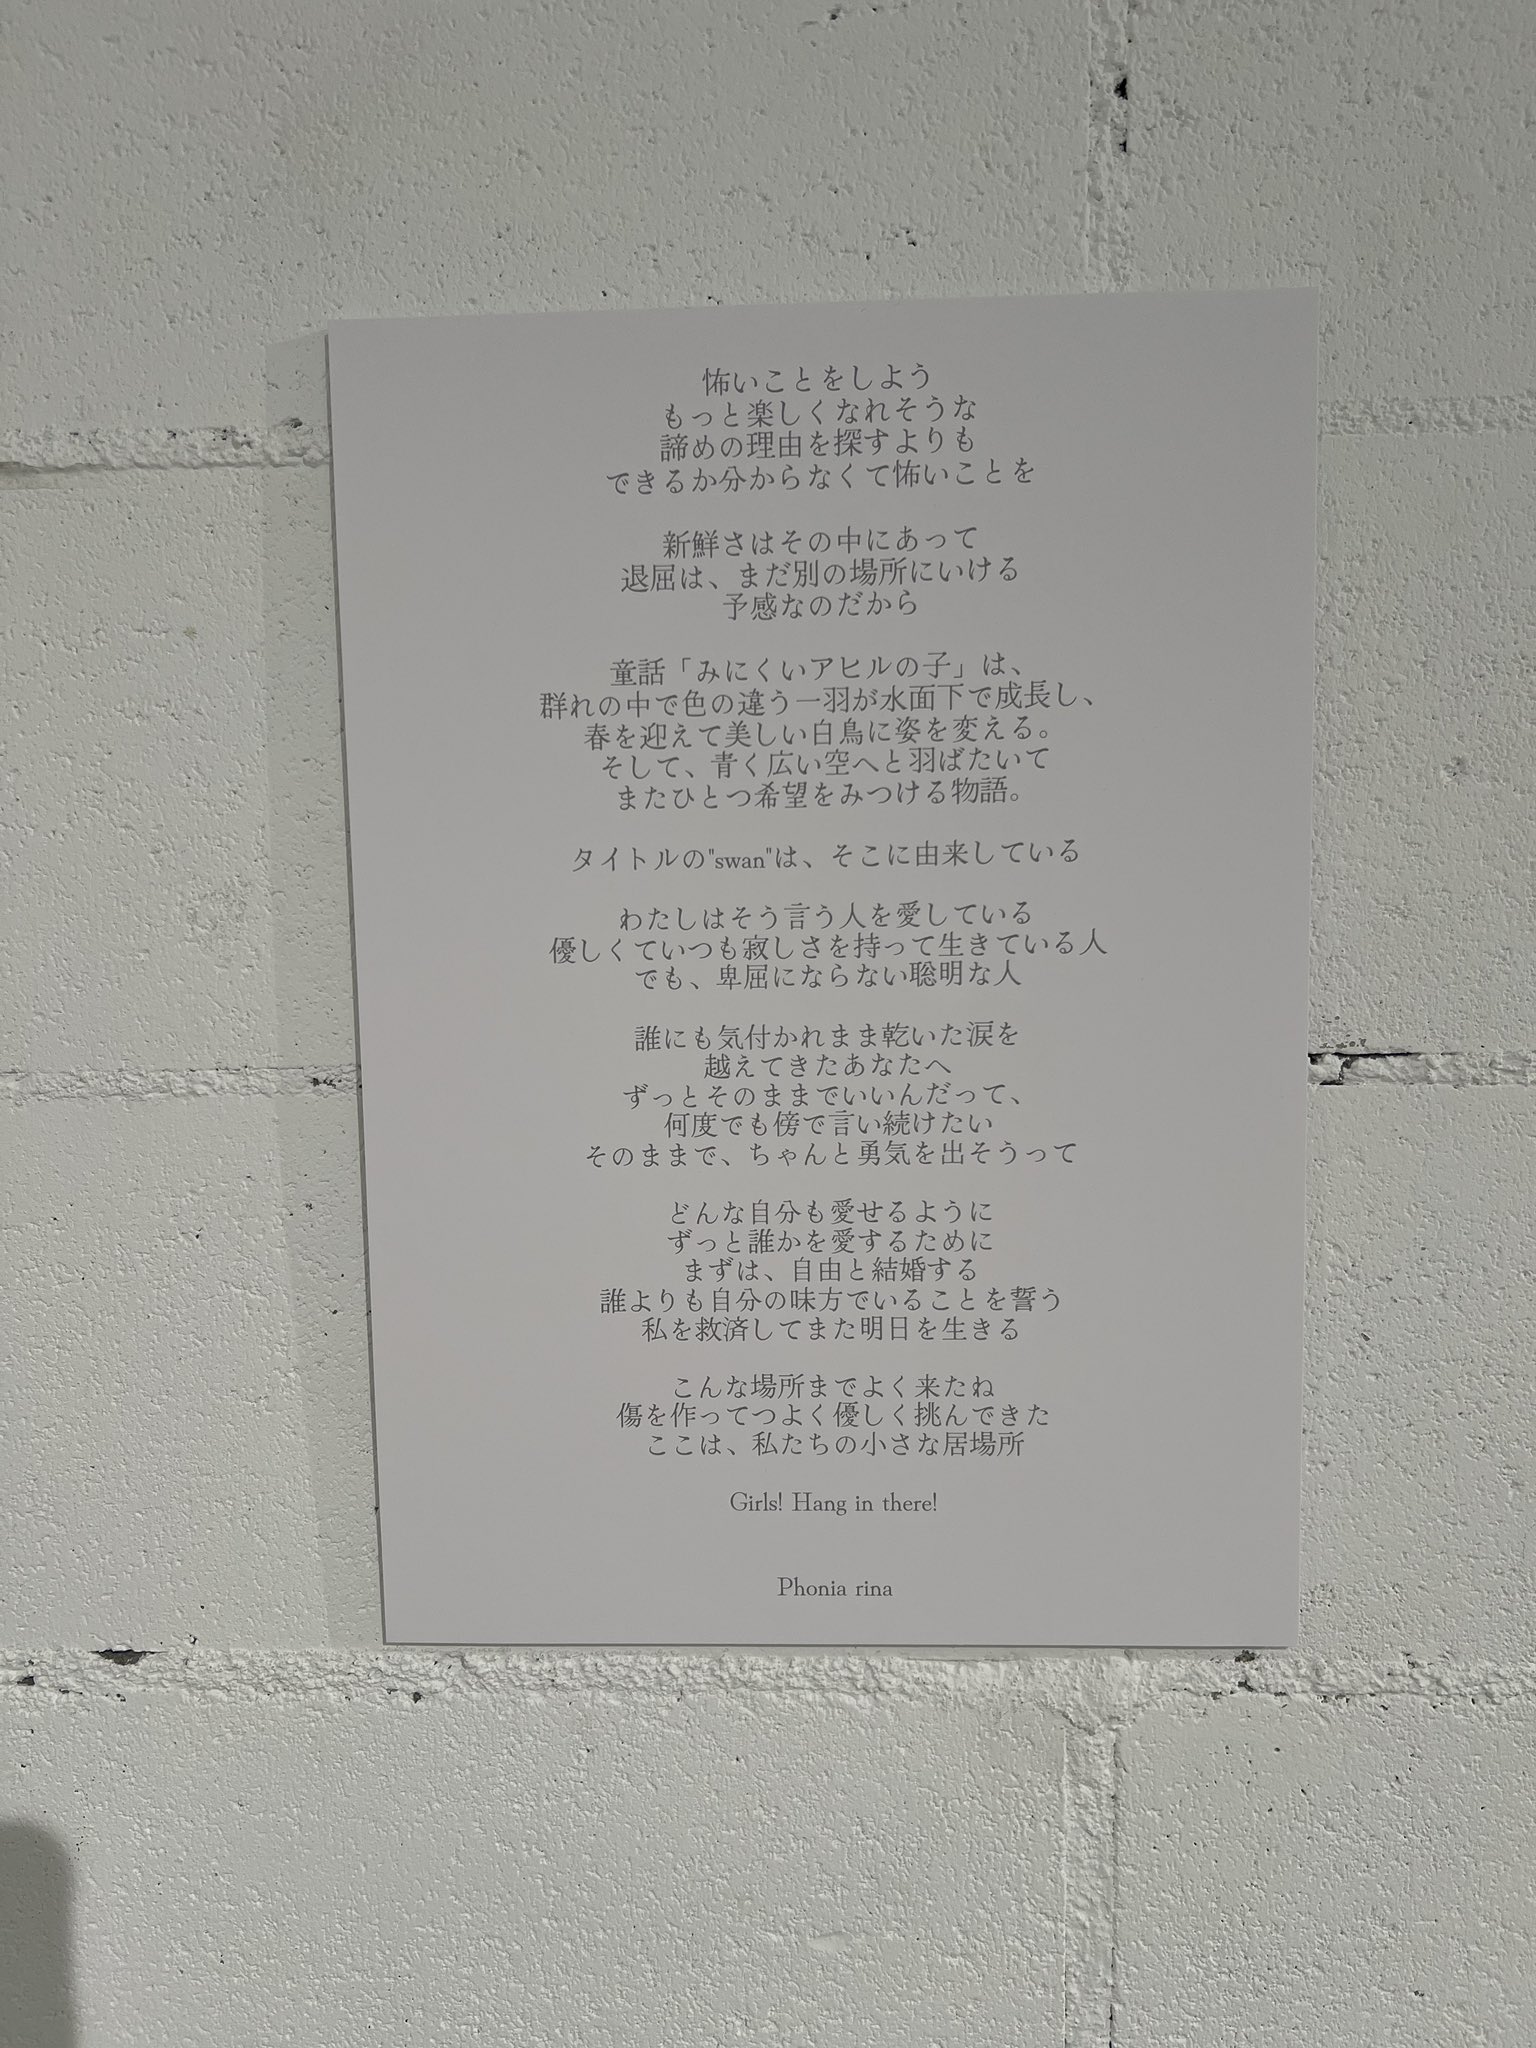 怖いことをしよう
もっと楽しくなれそうな
諦めの理由を探すよりも
できるか分からなくて怖いことを
新鮮さはその中にあって
退屈は、まだ別の場所にいける
予感なのだから
童話「みにくいアヒルの子」は、
群れの中で色の違う一羽が水面下で成長し、
春を迎えて美しい白鳥に姿を変える。
そして、青く広い空へと羽ばたいて
またひとつ希望をみつける物語。
タイトルの"swan"は、そこに由来している
わたしはそう言う人を愛している
優しくていつも寂しさを持って生きている人
でも、卑屈にならない聡明な人
誰にも気付かれまま乾いた涙を
越えてきたあなたへ
ずっとそのままでいいんだって、
何度でも傍で言い続けたい
そのままで、ちゃんと勇気を出そうって
どんな自分も愛せるように
ずっと誰かを愛するために
まずは、自由と結婚する
誰よりも自分の味方でいることを誓う
私を救済してまた明日を生きる
こんな場所までよく来たね
傷を作ってつよく優しく挑んできた
ここは、私たちの小さな居場所
Girls! Hang in there!
Phonia rina